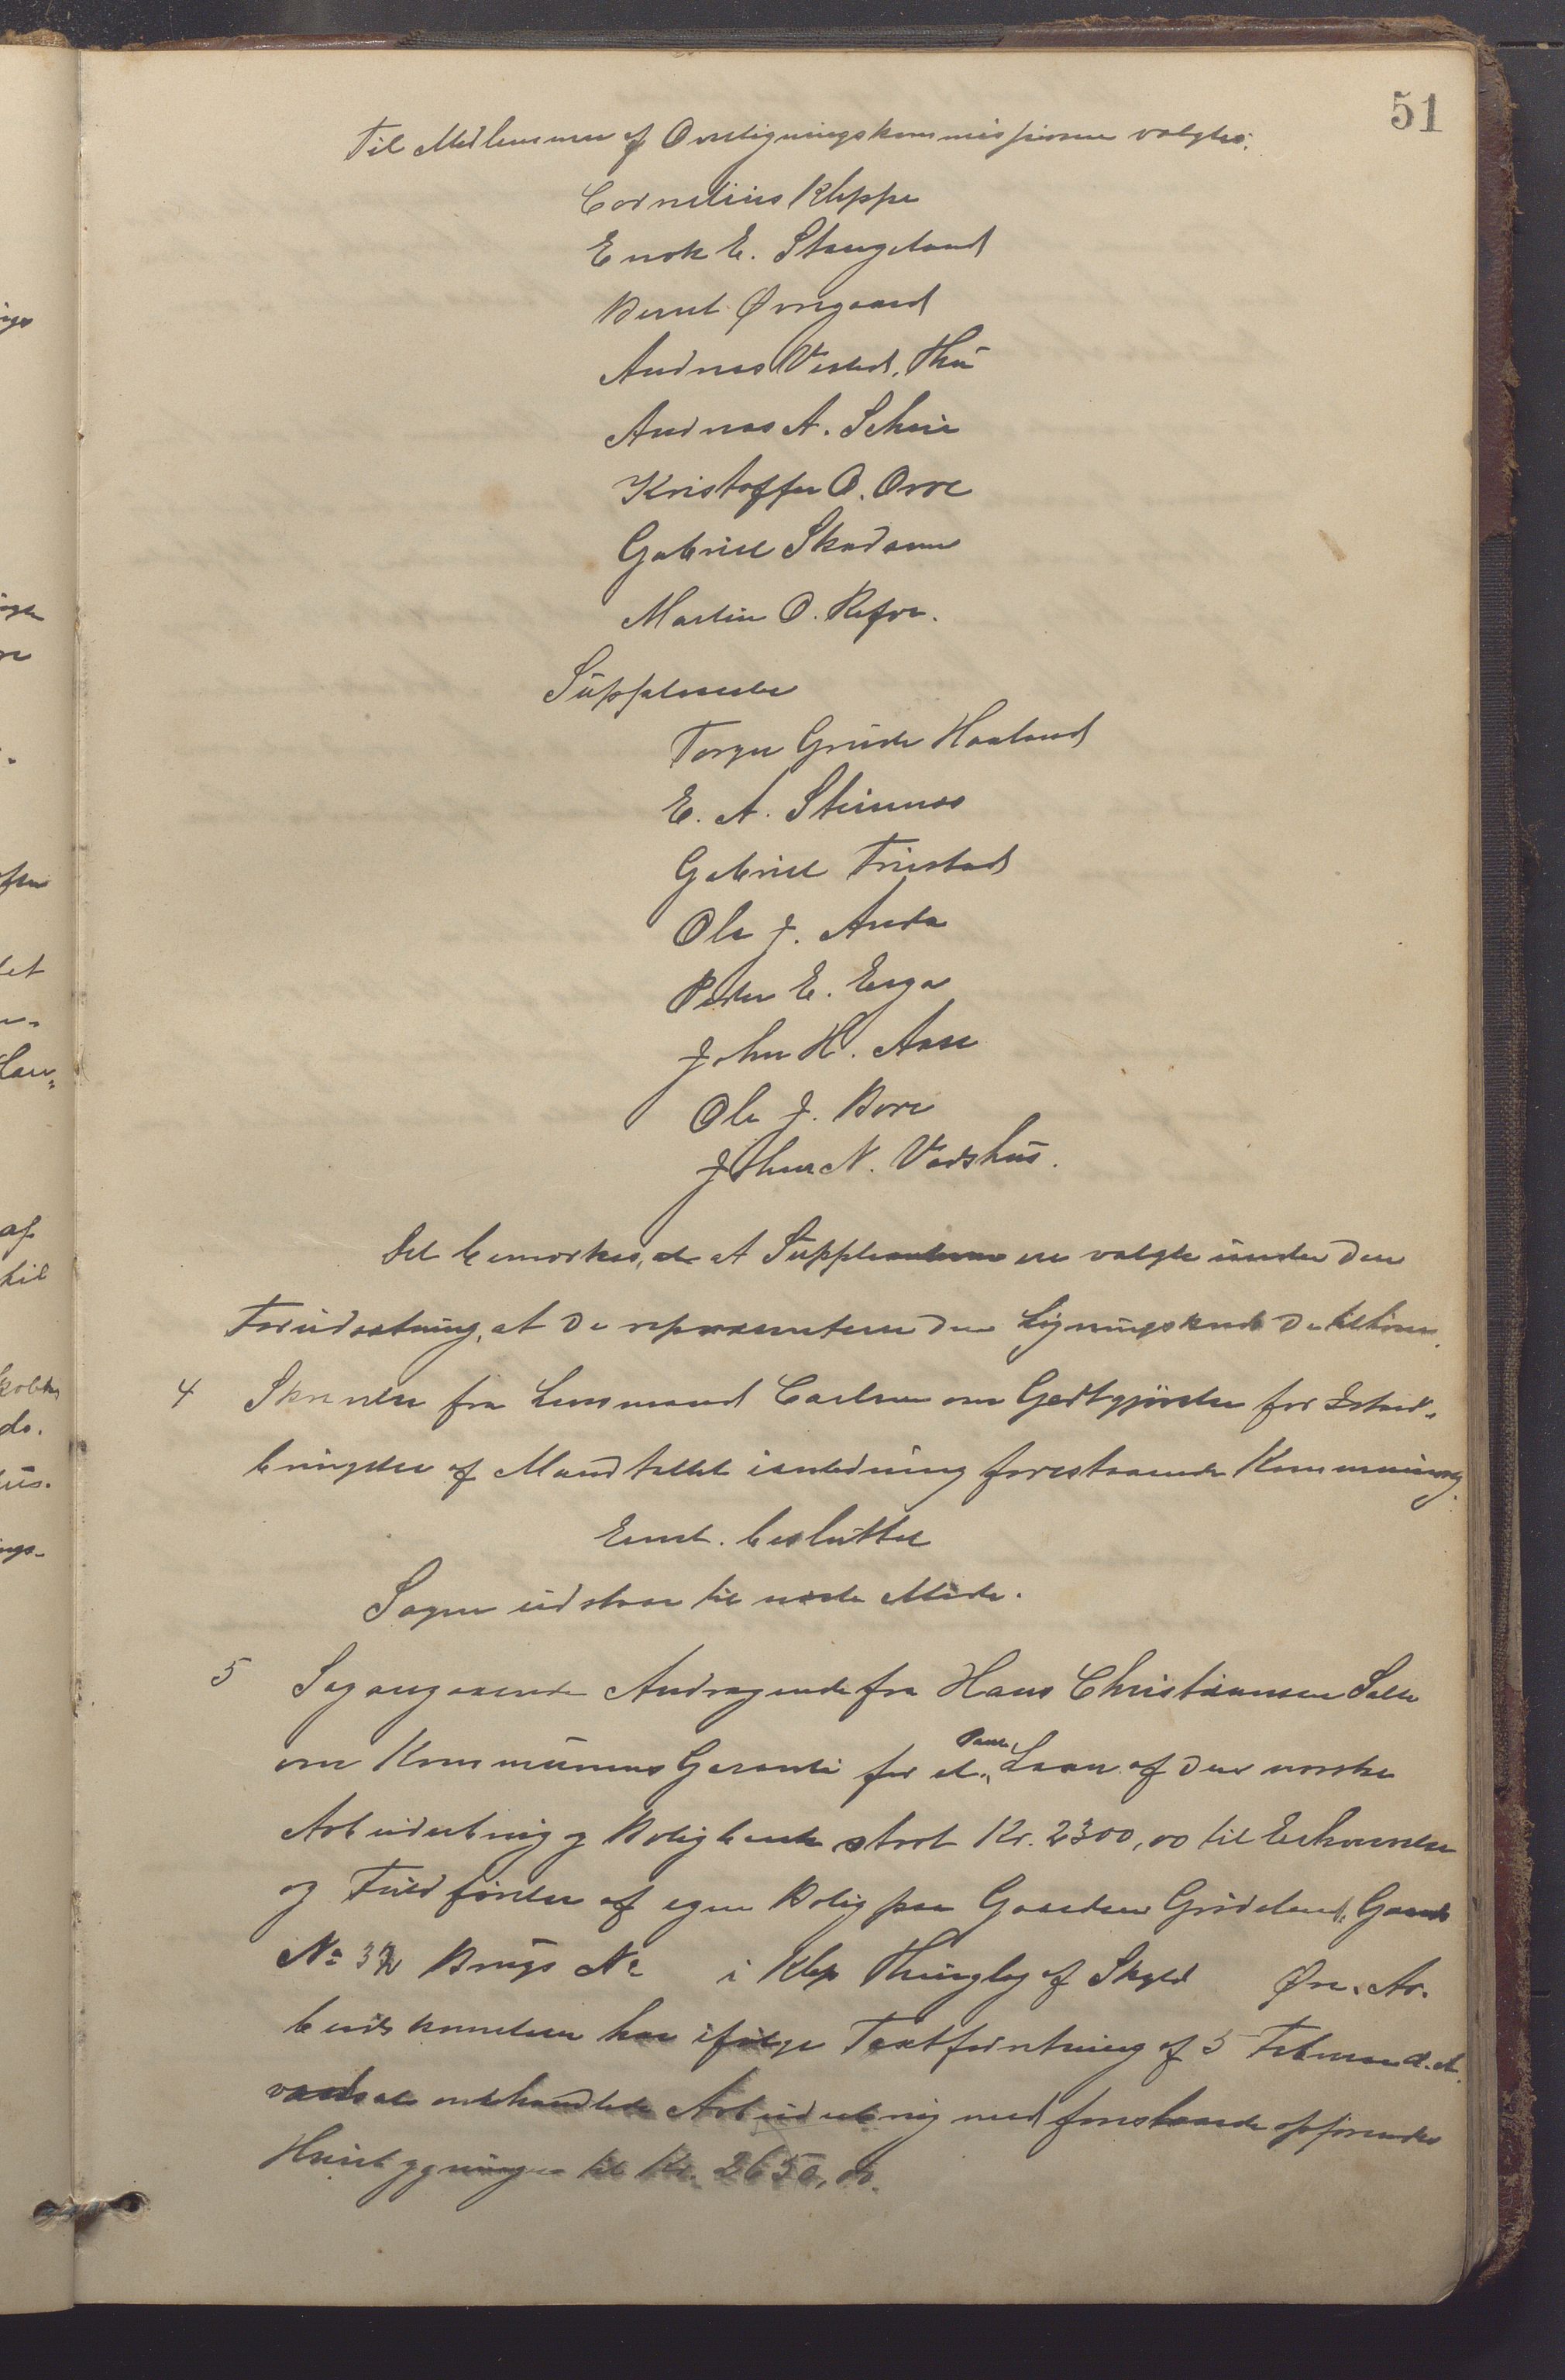 51
Til Medlemmer af Overligningskommissionen valgtes:
Cornelius Kleppe
Enok E. Stangeland
Bernt Øvregaard
Andreas Vested, Thu
Andreas A. Scheie
Kristoffer O. Orre
Gabriel Skadsem
Martin O. Refve.
Supplenter
Torger Grude Haaland
E. A. Steinnes
Gabriel Friestad
Ole J. Anda
Peder E. Erga
John H. Aase
Ole J. Bore
John N. Vadshus.
Det bemærkes, at Supplenterne ere valgte under den
Forudsætning, at de repræsenterer den Ligningskreds de tilhører.
4 Skrivelse fra Lensmand Carlsen om Godtgjörelse for Istand-
bringelse af Mandtallet ianledning forestaaende Kommunevalg.
Eenst. besluttet
Sagen udstaar til næste Möde.
5 Sag angaaende Andragende fra Hans Christiansen Sele
om Kommunens Garanti for et Pante Laan af den norske
Arbeiderbrug og Boligbank stort Kr. 2300,00 til Erhvervelse
og Fuldförelse af egen Bolig paa Gaarden Grödeland, Gaards
No 32 Brugs No i Klep Thinglag af Skyld Øre. Ar-
beidsnævnden har ifølge Taxtforretning af 5 Februar d. A.
værdsat omhandlede Arbeiderbrug med forestaaende opførendes
Husbygninger til Kr. 2650,00.